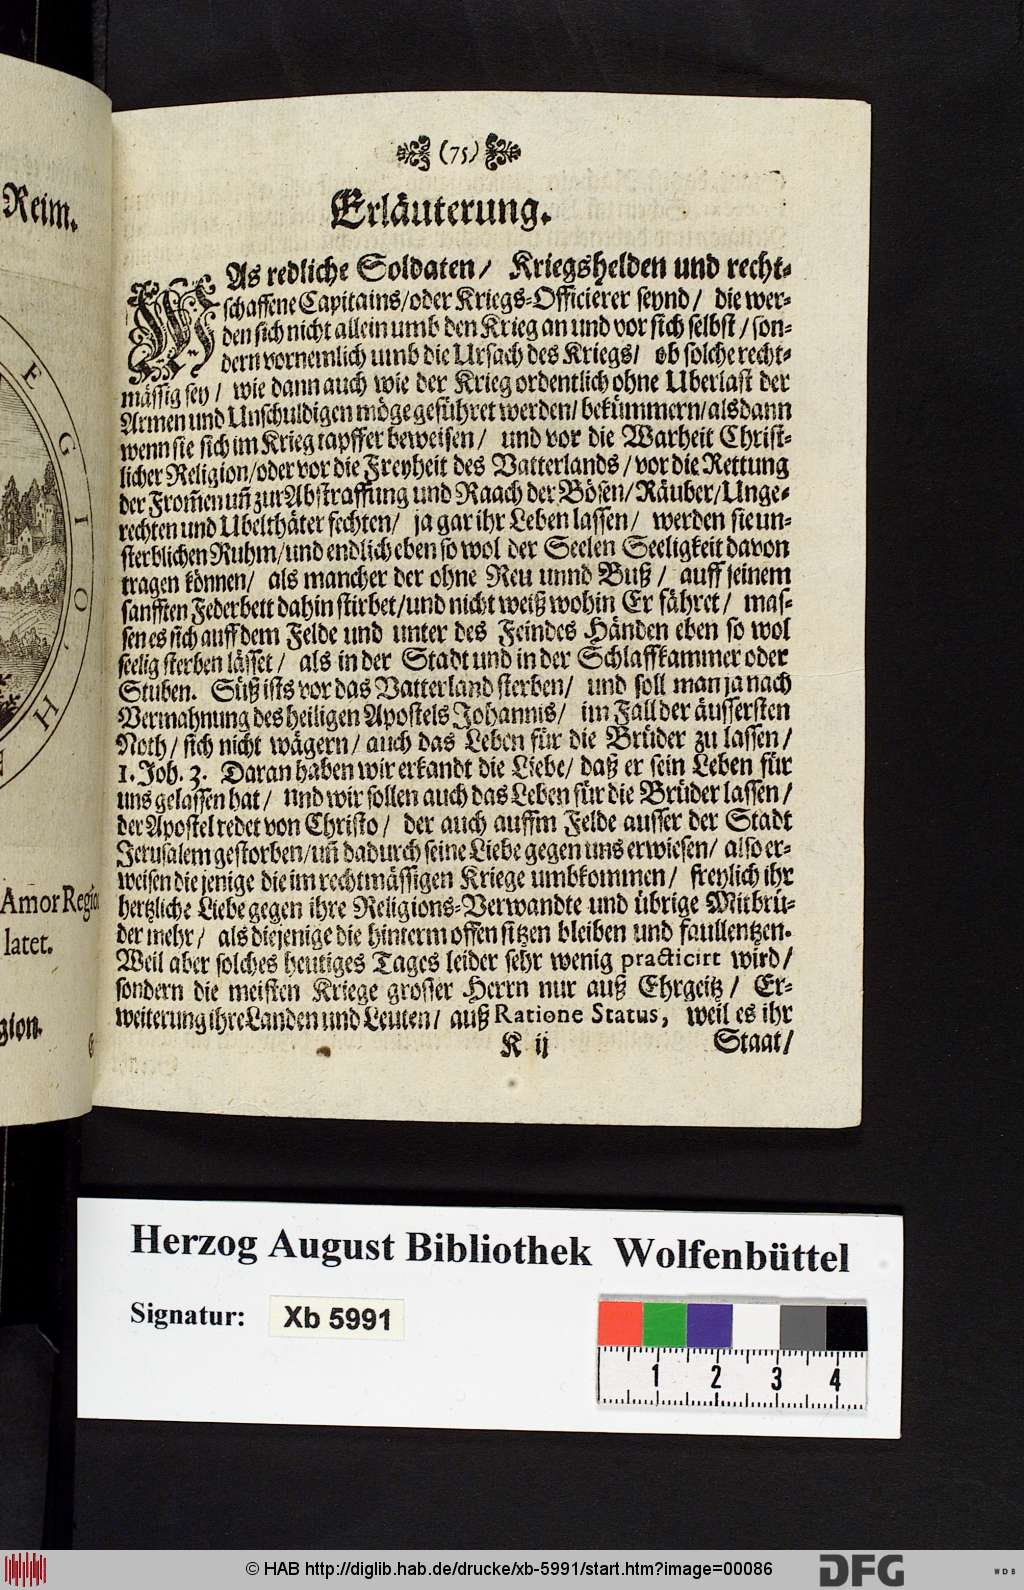 Reim.
EGIO
H
Amor Regio
latet.
gion.
(75)
Erläuterung.
WAs redliche Soldaten/ Kriegshelden und recht-
schaffene Capitains/oder Kriegs-Officierer seynd/ die wer-
den sich nicht allein umb den Krieg an und vor sich selbst/son-
dern vornemlich umb die Ursach des Kriegs/ ob solche recht-
mässig sey/ wie dann auch wie der Krieg ordentlich ohne Uberlast der
Armen und Unschuldigen möge geführet werden/bekümmern/alsdann
wenn sie sich im Krieg tapffer beweisen/ und vor die Warheit Christ-
licher Religion/oder vor die Freyheit des Vatterlands/vor die Rettung
der From̃en un̄ zur Abstraffung und Raach der Bösen/Räuber/Unge-
rechten und Ubelthäter fechten/ ja gar ihr Leben lassen/ werden sie un-
sterblichen Ruhm/und endlich eben so wol der Seelen Seeligkeit davon
tragen können/ als mancher der ohne Reu unnd Buß/ auff seinem
sanfften Federbett dahin stirbet/und nicht weiß wohin Er fähret/ mas-
sen es sich auff dem Felde und unter des Feindes Händen eben so wol
seelig sterben lässet/ als in der Stadt und in der Schlaffkammer oder
Stuben. Süß ists vor das Vatterland sterben/ und soll man ja nach
Vermahnung des heiligen Apostels Johannis/ im Fall der äussersten
Noth/sich nicht wägern/auch das Leben für die Brüder zu lassen/
1. Joh. 3. Daran haben wir erkandt die Liebe/daß er sein Leben für
uns gelassen hat/ und wir sollen auch das Leben für die Brüder lassen/
der Apostel redet von Christo/ der auch auffm Felde ausser der Stadt
Jerusalem gestorben/un̄ dadurch seine Liebe gegen uns erwiesen/also er-
weisen die jenige die im rechtmässigen Kriege umbkommen/ freylich ihr
hertzliche Liebe gegen ihre Religions-Verwandte und übrige Mitbrü-
der mehr/ als diejenige die hinterm offen sitzen bleiben und faullentzen.
Weil aber solches heutiges Tages leider sehr wenig practicirt wird/
sondern die meisten Kriege grosser Herrn nur auß Ehrgeitz/ Er-
weiterung ihre Landen und Leuten/ auß Ratione Status, weil es ihr
K ij Staat/
Herzog August Bibliothek Wolfenbüttel
Signatur: Xb 5991
1 2 3 4
© HAB http://diglib.hab.de/drucke/xb-5991/start.htm?image=00086
DFG
WDB